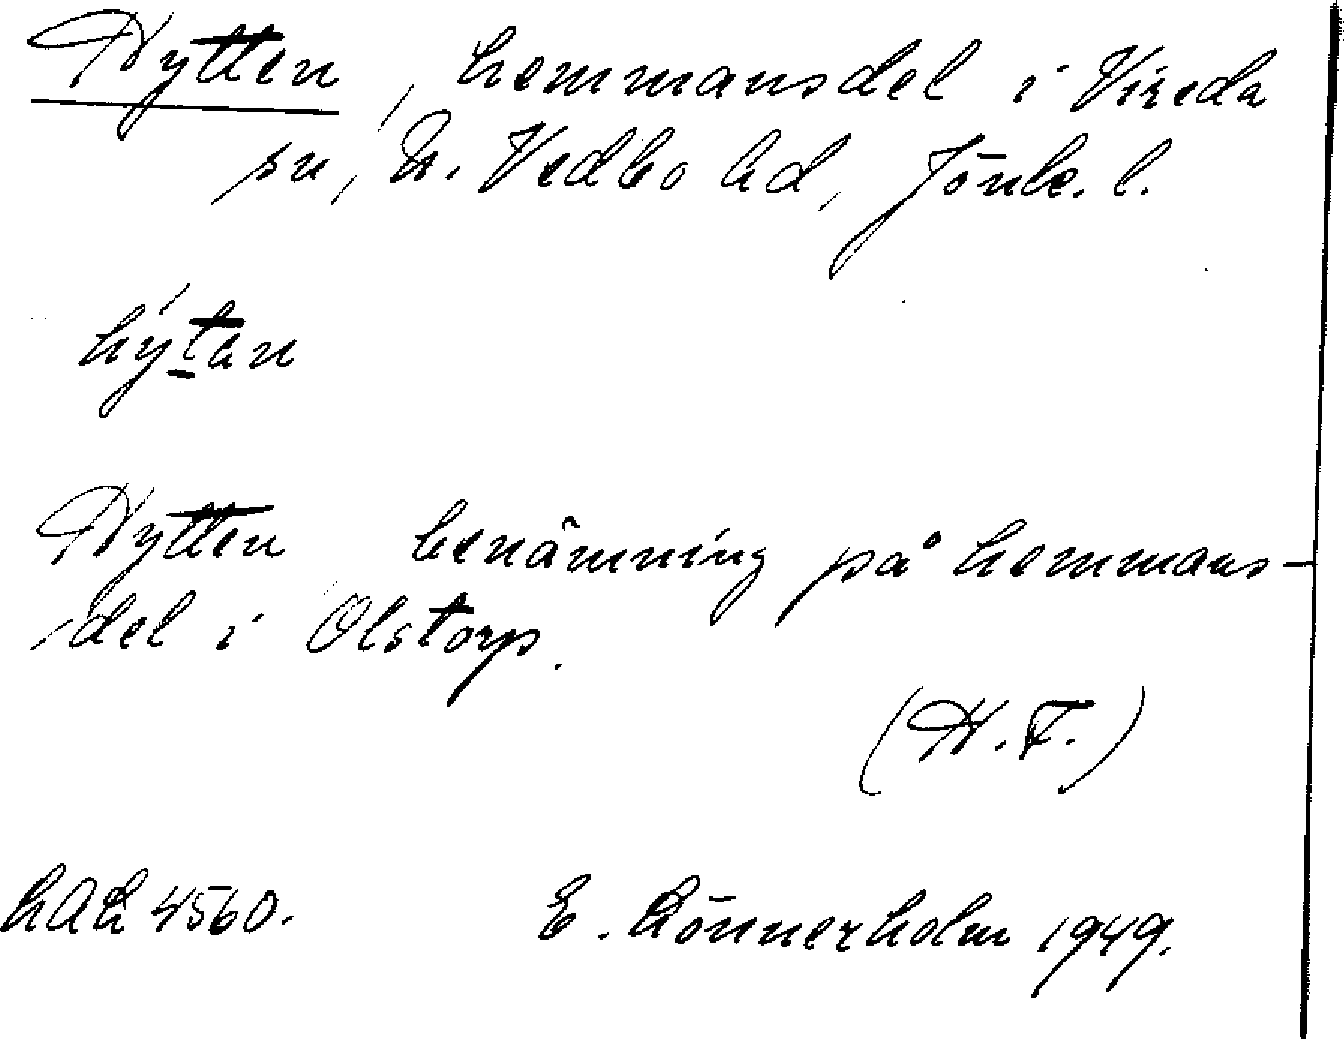 Hytten, hemmansdel i Vireda
sn, N. Vedbo hd, Jönk. l.
hýtan
Hytten benämning på hemmans-
del i Olstorp.
(H. F.)
4560.
E. Lönnerholm 1949.